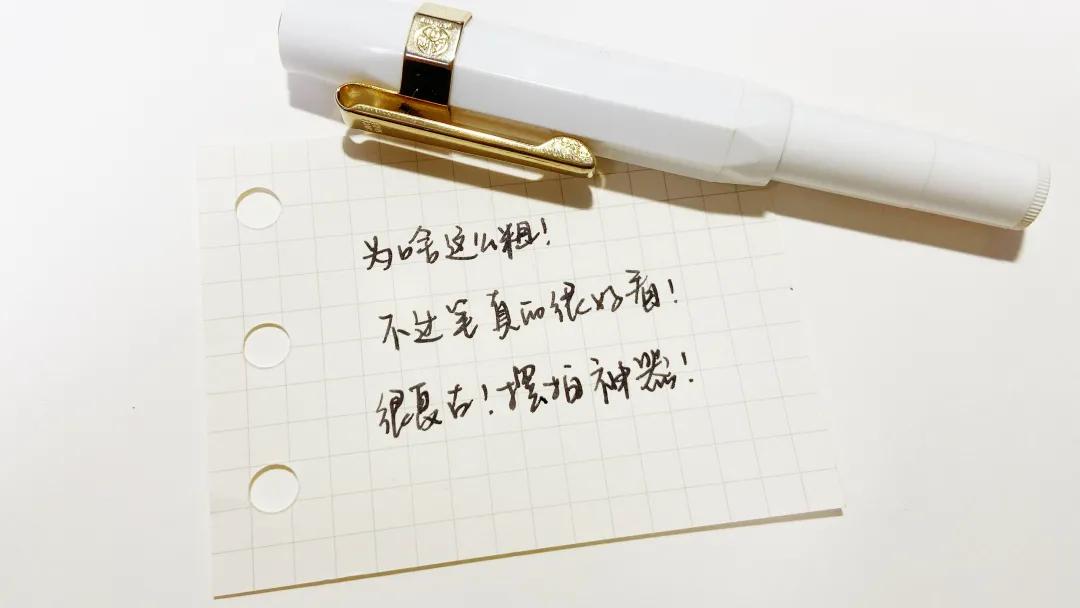 为啥这么粗！
不过笔真的很好看！
很复古！摆拍神器！